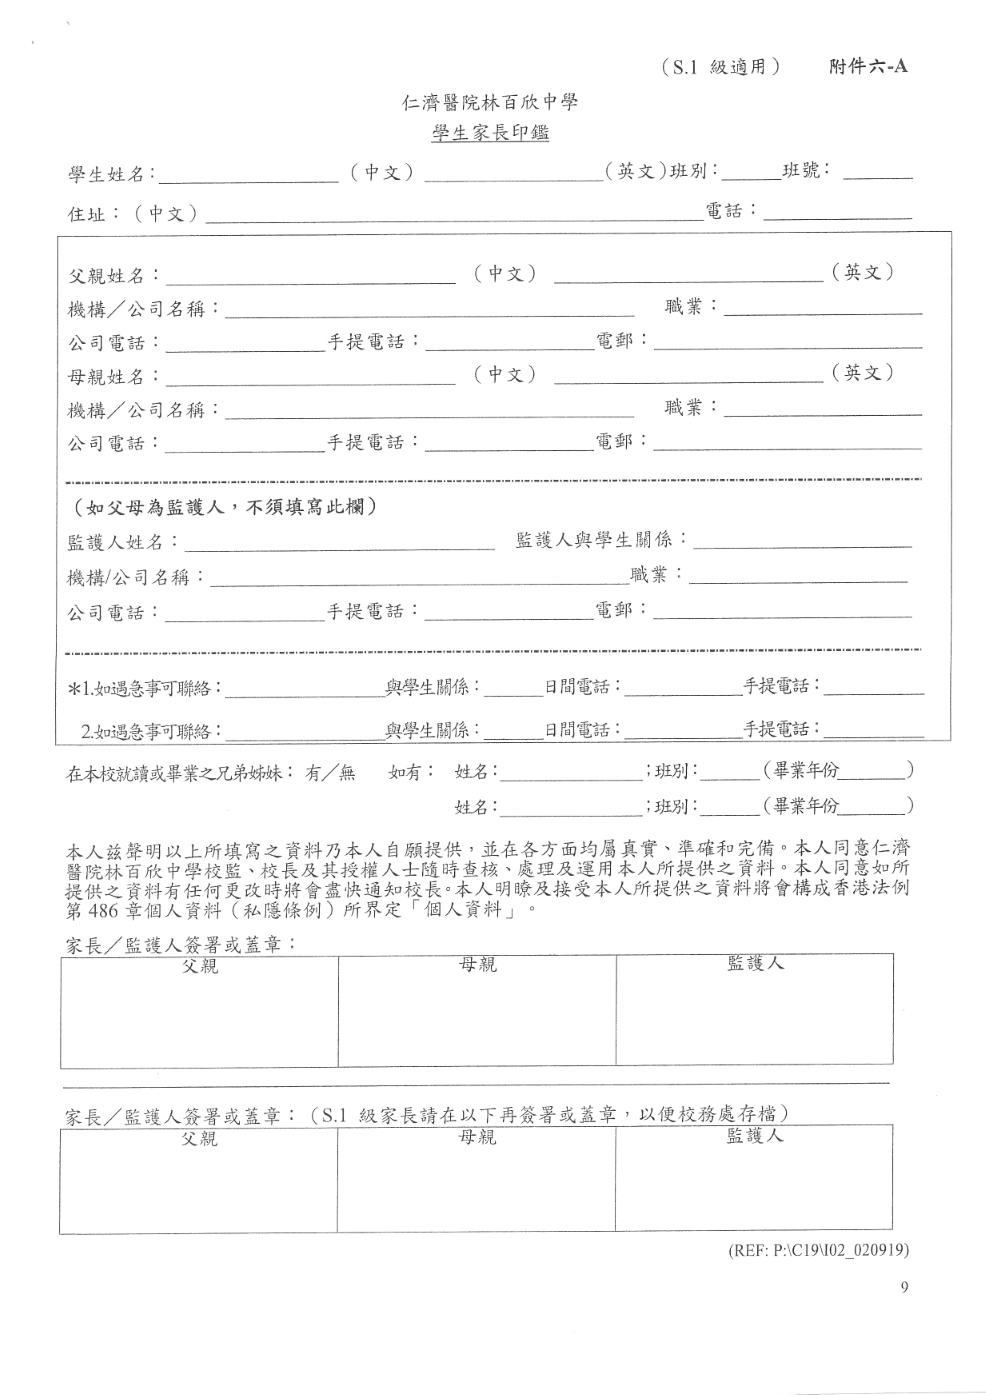 （S.1 級適用） 附件六-A
仁濟醫院林百欣中學
學生家長印鑑
學生姓名：__________（中文）__________（英文）班別：____班號：____
住址：（中文）__________電話：__________
父親姓名：__________（中文）__________（英文）
機構／公司名稱：__________ 職業：__________
公司電話：__________手提電話：__________電郵：__________
母親姓名：__________（中文）__________（英文）
機構／公司名稱：__________ 職業：__________
公司電話：__________手提電話：__________電郵：__________
（如父母為監護人，不須填寫此欄）
監護人姓名：__________ 監護人與學生關係：__________
機構/公司名稱：__________職業：__________
公司電話：__________手提電話：__________電郵：__________
＊1.如遇急事可聯絡：__________與學生關係：____日間電話：________手提電話：________
2.如遇急事可聯絡：__________與學生關係：____日間電話：________手提電話：________
在本校就讀或畢業之兄弟姊妹：有／無 如有： 姓名：__________；班別：____（畢業年份____）
姓名：__________；班別：____（畢業年份____）
本人茲聲明以上所填寫之資料乃本人自願提供，並在各方面均屬真實、準確和完備。本人同意仁濟
醫院林百欣中學校監、校長及其授權人士隨時查核、處理及運用本人所提供之資料。本人同意如所
提供之資料有任何更改時將會盡快通知校長。本人明瞭及接受本人所提供之資料將會構成香港法例
第 486 章個人資料（私隱條例）所界定「個人資料」。
家長／監護人簽署或蓋章：
父親 母親 監護人
家長／監護人簽署或蓋章：（S.1 級家長請在以下再簽署或蓋章，以便校務處存檔）
父親 母親 監護人
(REF: P:\C19\I02_020919)
9